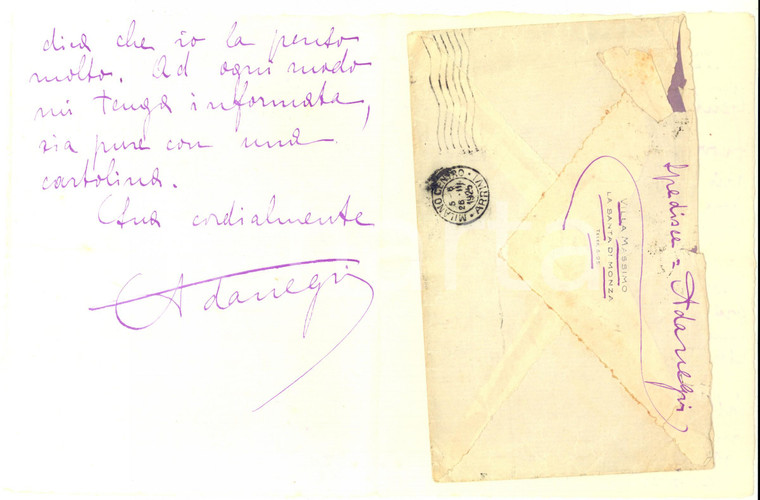 dica che io la penso
molto. Ad ogni modo
mi tenga informata,
sia pure con una
cartolina.
Sua cordialmente
Adanegri
MILANO CENTRO
26 III
1925
ARRIVI
VILLA MASSIMO
LA SANTA DI MONZA
spedisce = Adanegri